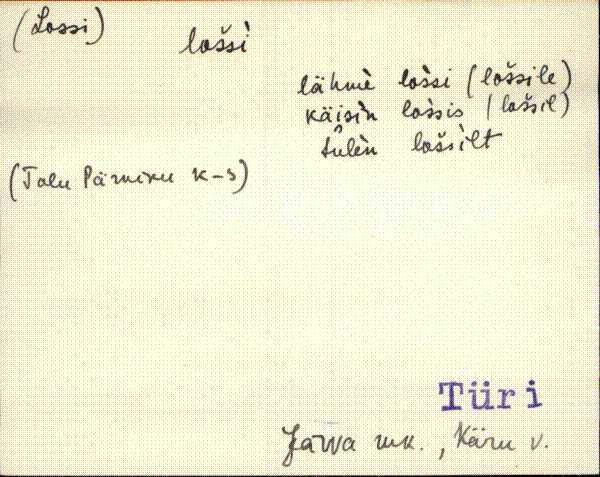 (Lossi)
lošsì
lähmè lošsi (lošsile)
käisìn lošsis (lošsil)
tulèn lošsìlt
(Talu Pärniku k-s)
Türi
Järva mk., Käru v.